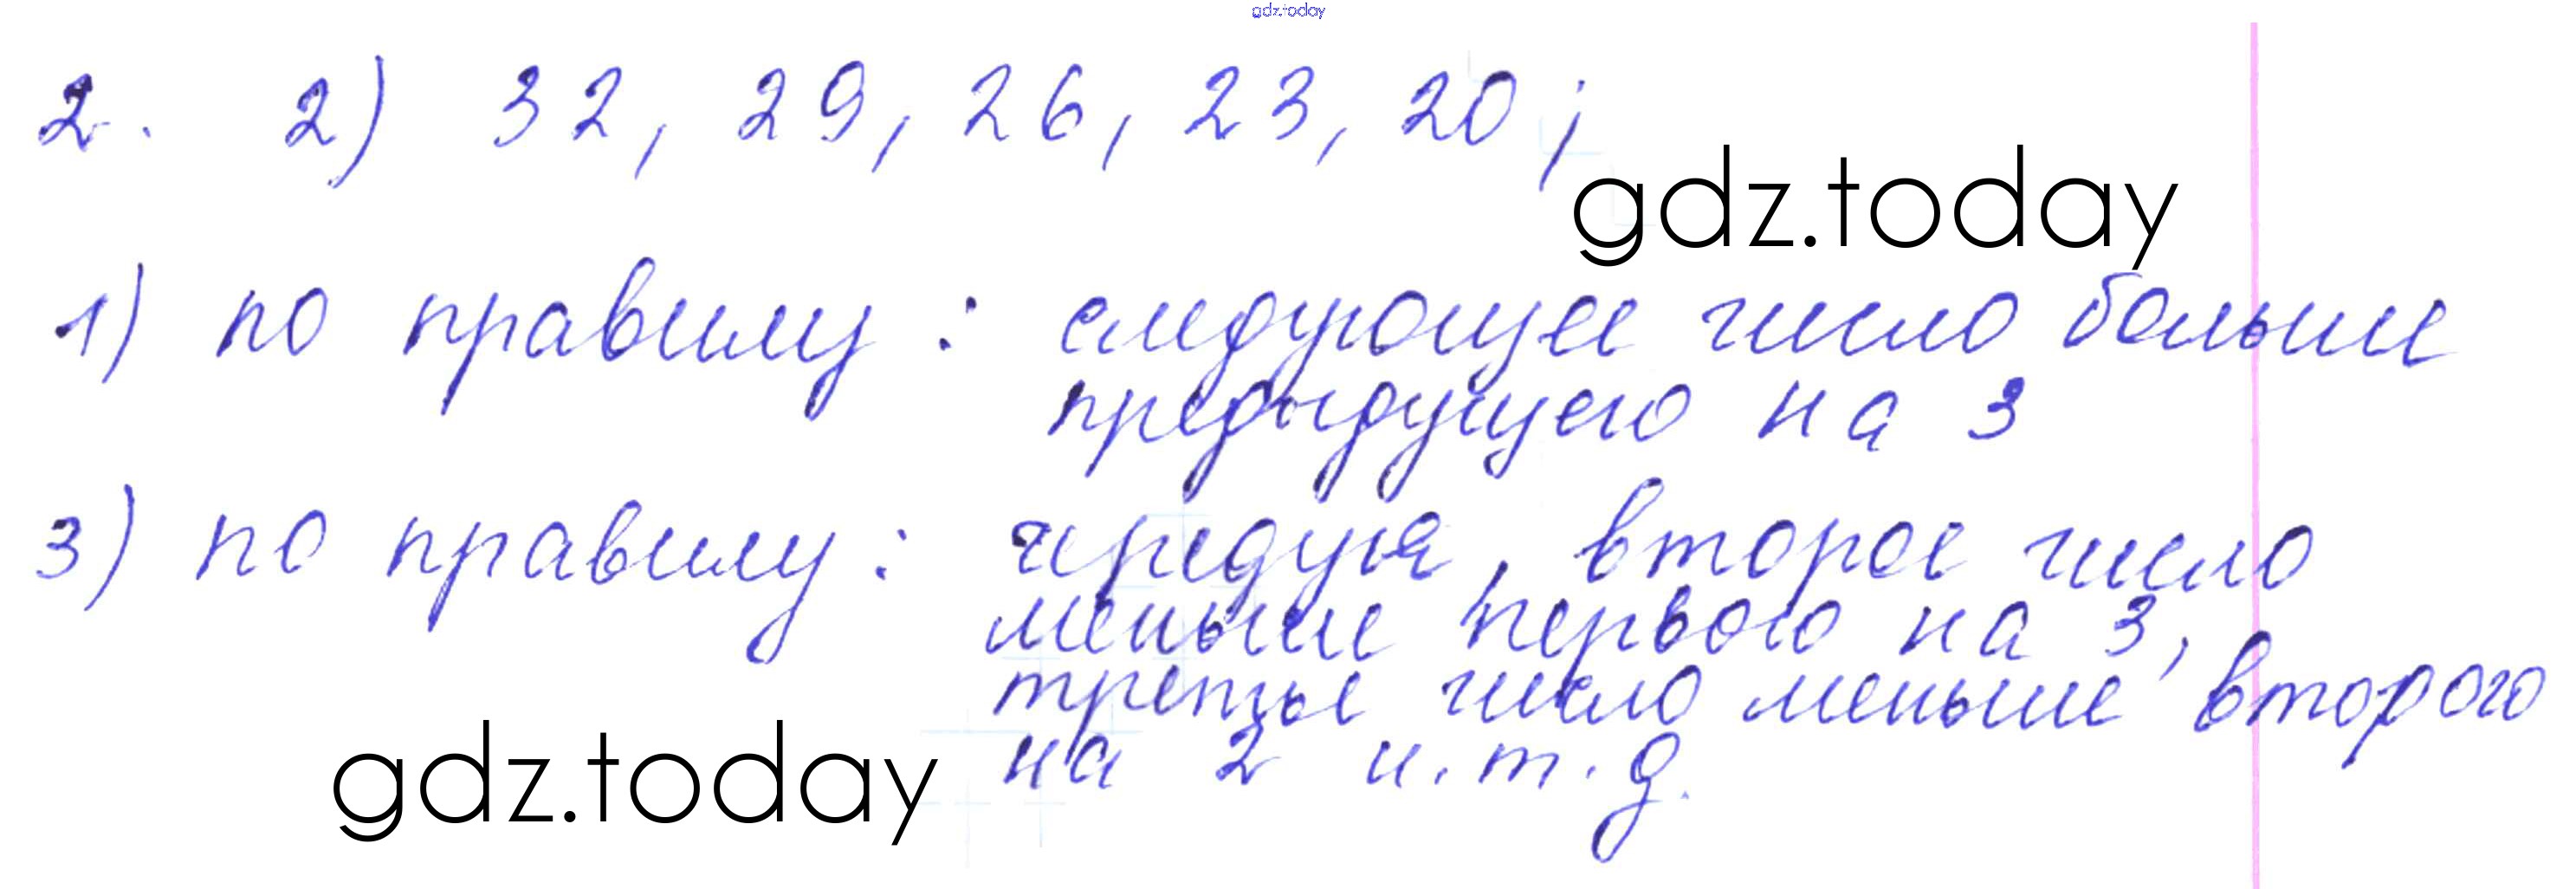 gdz.today
2. 2) 32, 29, 26, 23, 20;
gdz.today
1) по правилу: следующее число больше
предыдущего на 3
3) по правилу: чредуя, второе число
меньше первого на 3,
третье число меньше второго
на 2 и.т.д.
gdz.today